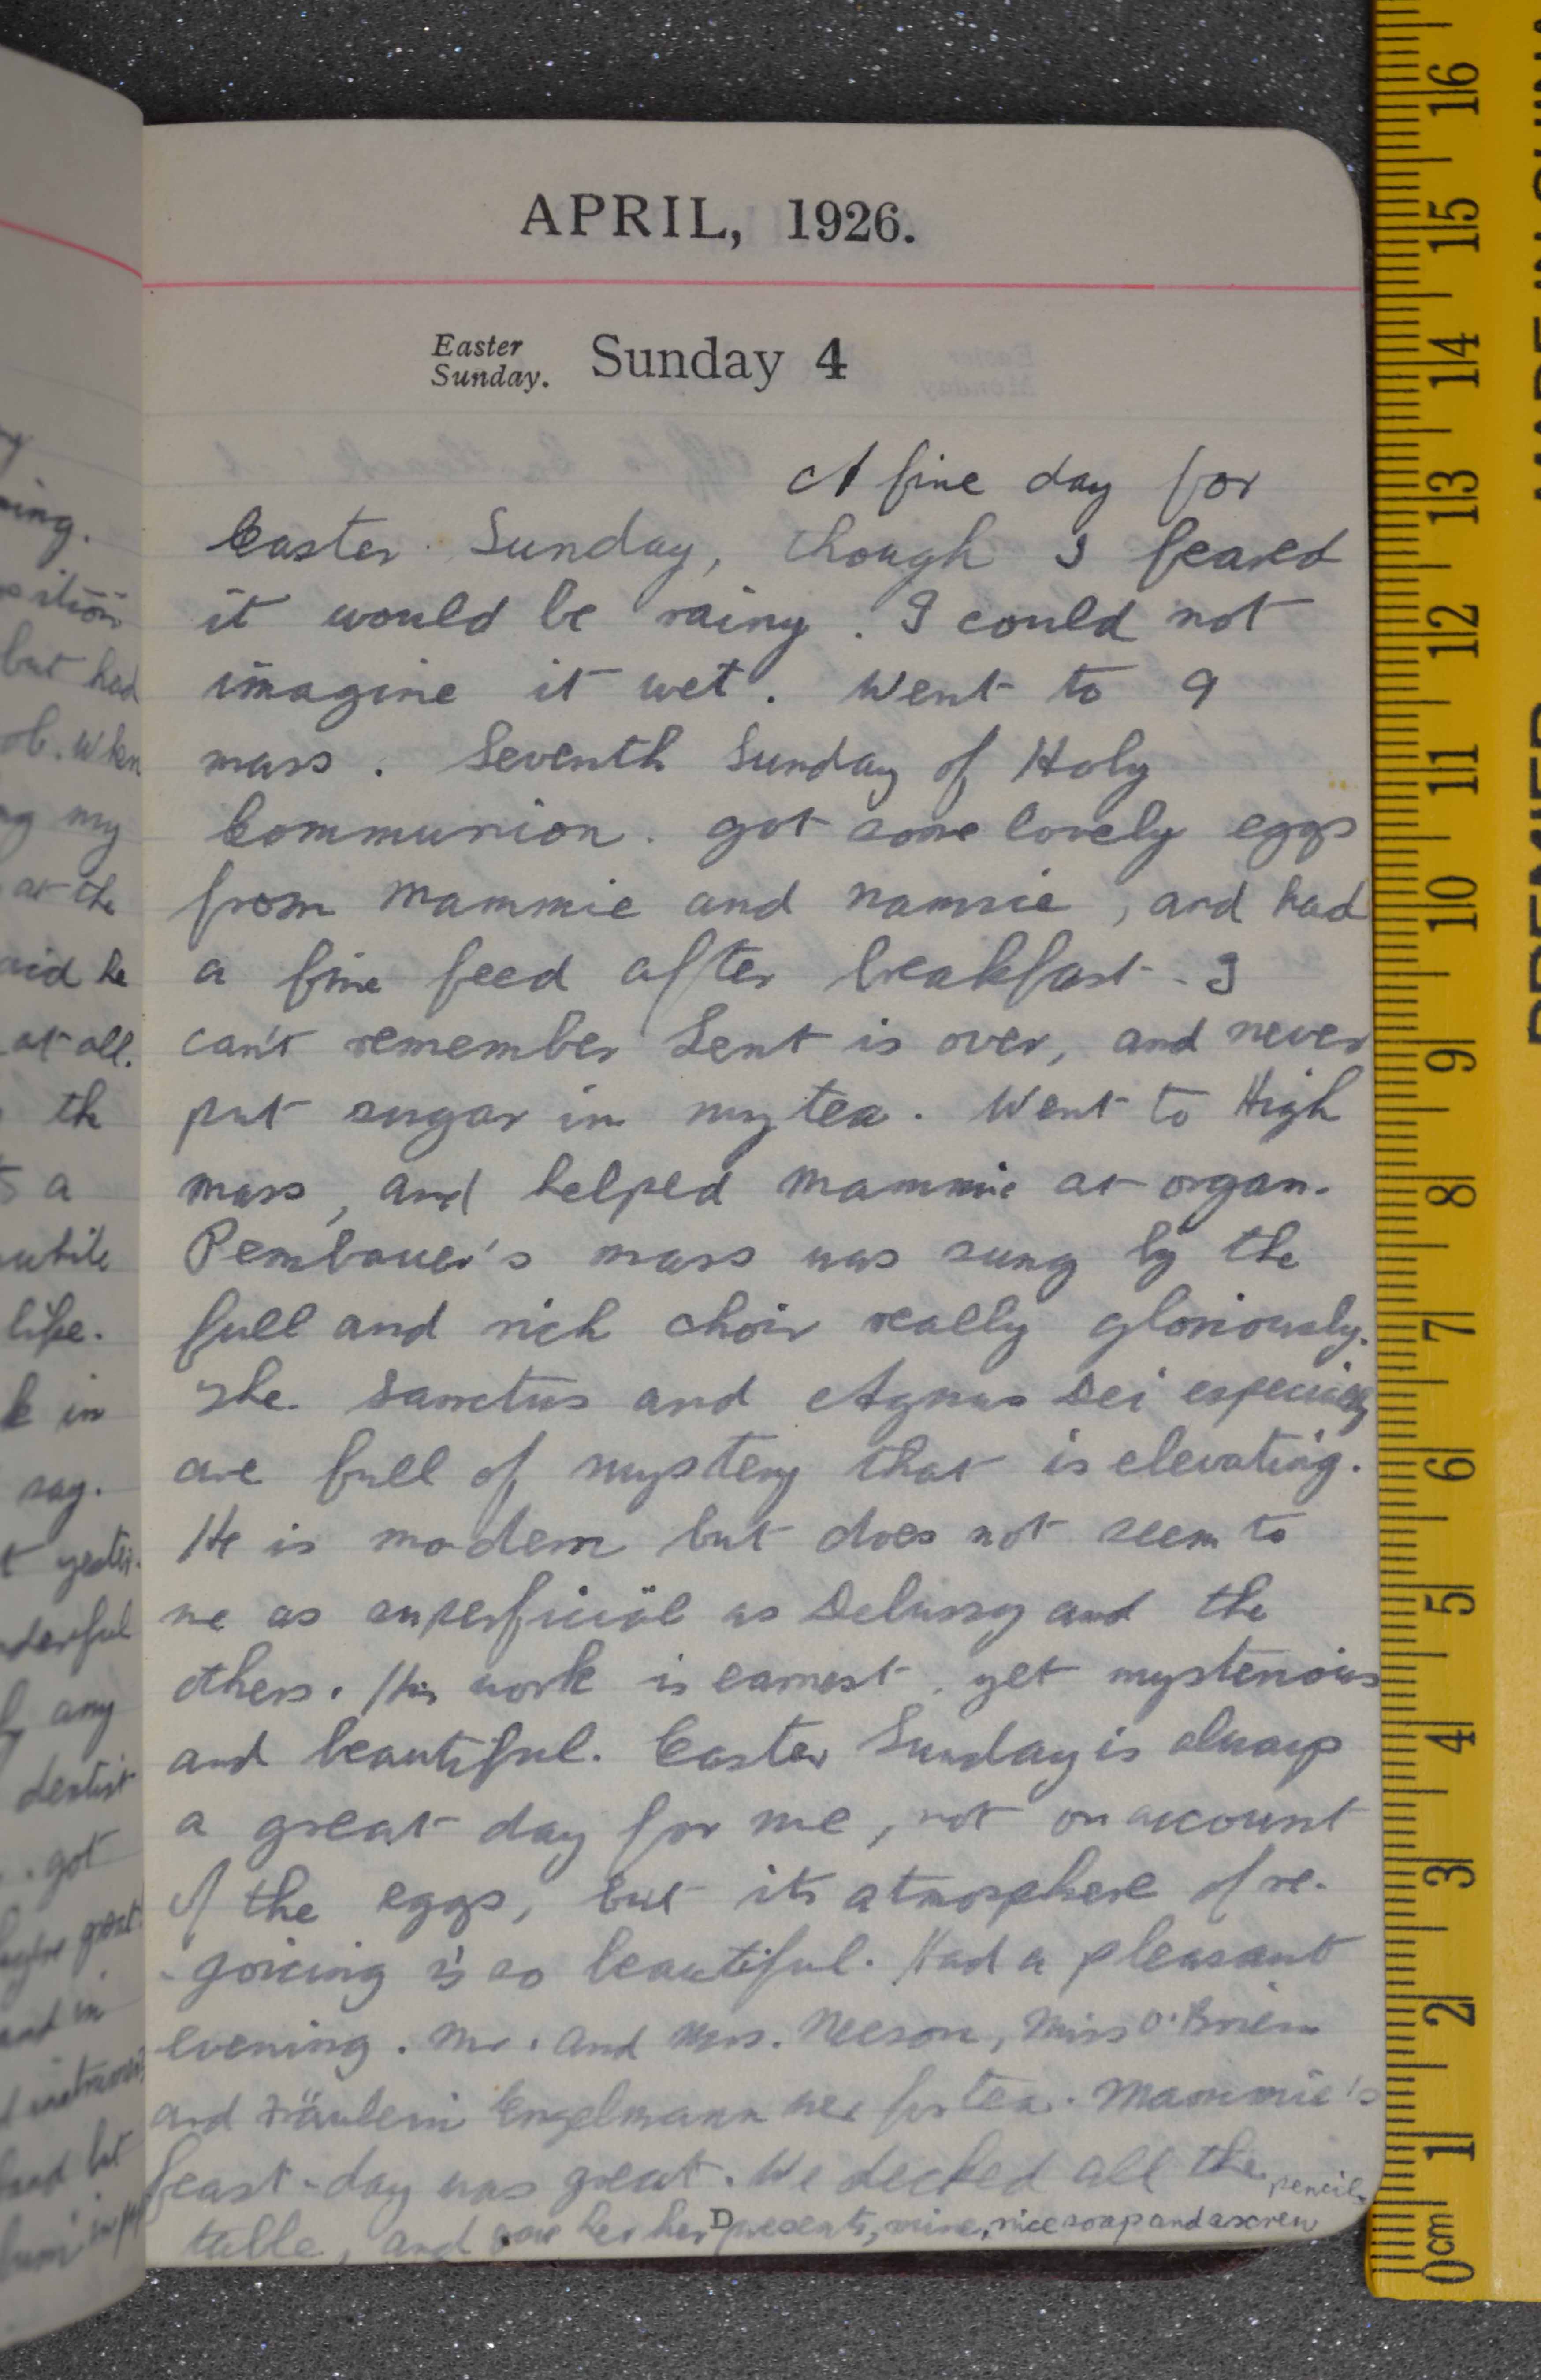 APRIL, 1926.
Easter
Sunday. Sunday 4
A fine day for
Easter Sunday, though I feared
it would be rainy. I could not
imagine it wet. Went to 9
mass. Seventh Sunday of Holy
Communion. got some lovely eggs
from Mammie and Namsie, and had
a fine feed after breakfast. I
can't remember Lent is over, and never
put sugar in my tea. Went to High
mass, and helped Mammie at organ.
Pembauer's mass was sung by the
full and rich choir really gloriously.
The Sanctus and Agnus Dei especially
are full of mystery that is elevating.
He is modern but does not seem to
me as superficiäl as Debussy and the
others. His work is earnest, yet mysterious
and beautiful. Easter Sunday is always
a great day for me, not on account
of the eggs, but its atmosphere of re-
-joicing is so beautiful. Had a pleasant
evening. Mr. and Mrs. Neeson, Miss O'Brien
and Fräulein Engelmann were for tea. Mammie's
feast-day was great. We decked all the
pencil.
table, and gave her her presents, mine, nice soap and a screw
ning.
but had
ob. When
ng my
at the
aid he
at all.
th
a
while
life.
k in
say.
t yester-
nderful
any
dentist
. got
great
and in
had but
16
15
14
13
12
11
10
9
8
7
6
5
4
3
2
1
0cm
PREMIER
MADE IN CHINA